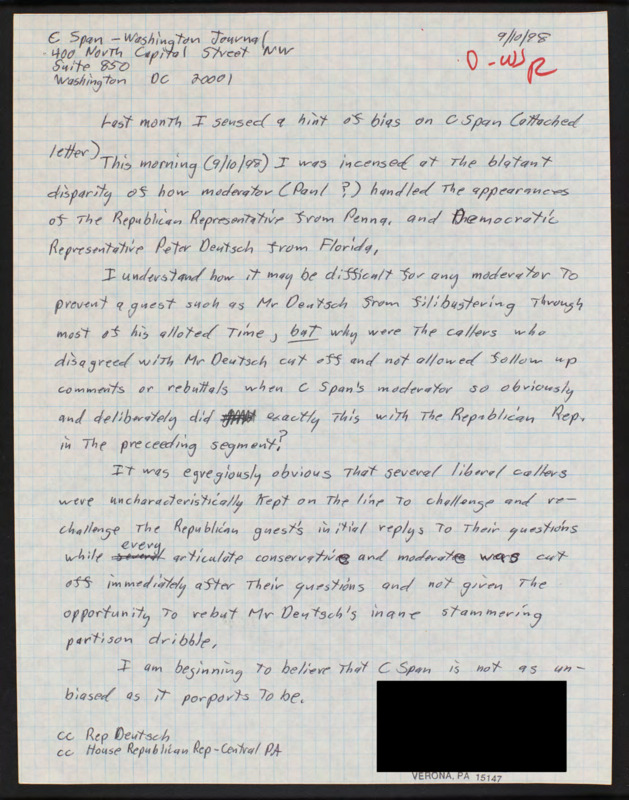 C Span - Washington Journal
400 North Capital Street NW
Suite 850
Washington DC 20001
9/10/98
O-WJ
R
Last month I sensed a hint of bias on C Span (attached
letter)
This morning (9/10/98) I was incensed at the blatant
disparity of how moderator (Paul ?) handled the appearances
of the Republican Representative from Penna. and Democratic
Representative Peter Deutsch from Florida,
I understand how it may be difficult for any moderator to
prevent a guest such as Mr Deutsch from filibustering through
most of his alloted time, but why were the callers who
disagreed with Mr Deutsch cut off and not allowed follow up
comments or rebuttals when C Span's moderator so obviously
and deliberately did exactly this with the Republican Rep.
in the preceeding segment?
It was egregiously obvious that several liberal callers
were uncharacteristically kept on the line to challenge and re-
challenge the Republican guest's initial replys to their questions
while every articulate conservative and moderate was cut
off immediately after their questions and not given the
opportunity to rebut Mr Deutsch's inane stammering
partison dribble,
I am beginning to believe that C Span is not as un-
biased as it porports to be.
cc Rep Deutsch
cc House Republican Rep-Central PA
VERONA, PA 15147